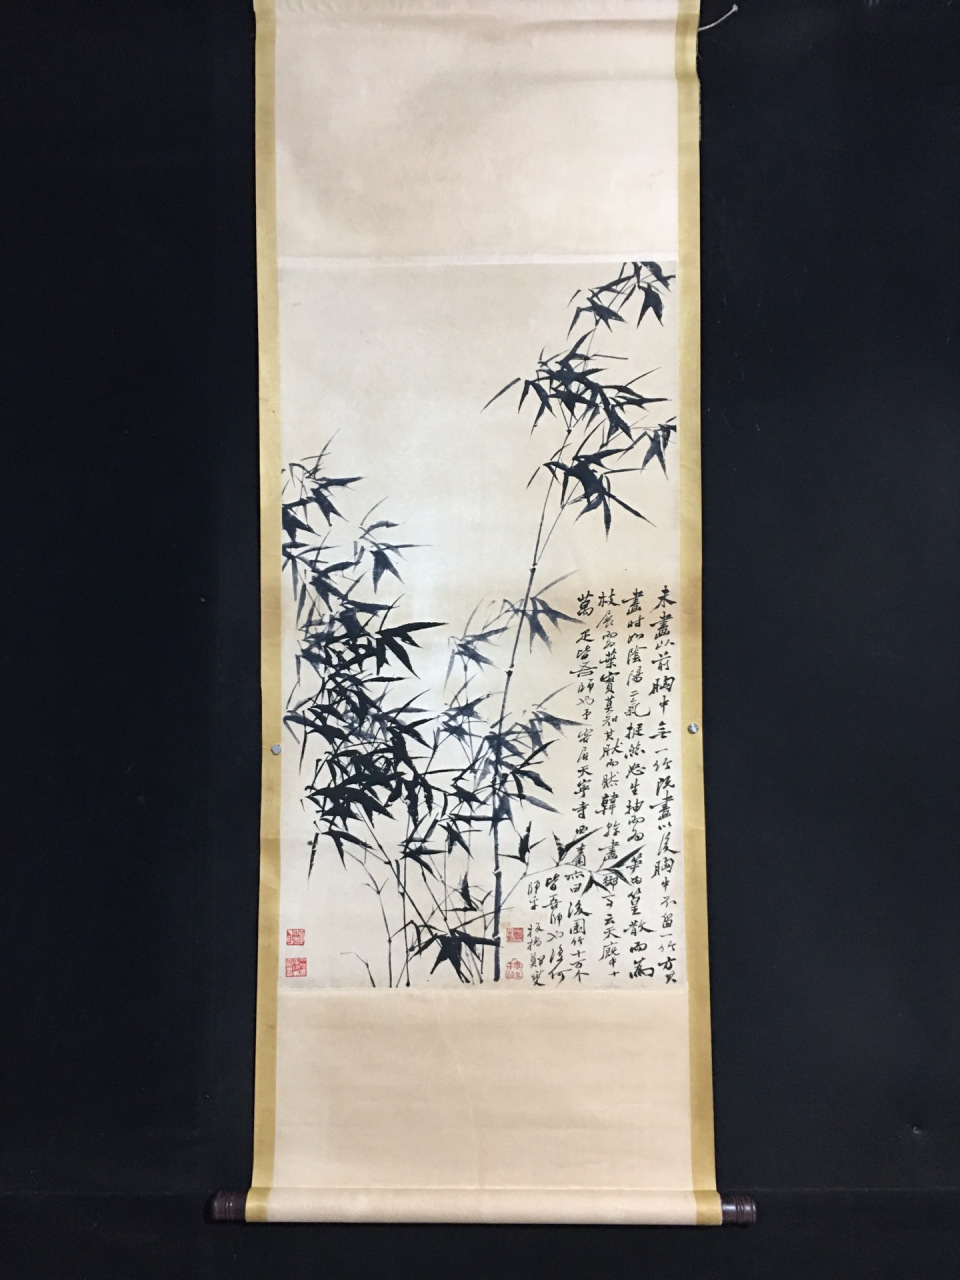 未畫以前胸中無一竹既畫以後胸中不留一竹方其
畫時如陰陽二氣挺然怒生抽而為筍為篁散而為
枝展而為葉實莫知其然而然韓幹畫御馬云天廄中十
萬匹皆吾師也予客居天寧寺西杏園亦曰後園竹十萬个
皆吾師也復何
師乎 板橋鄭燮